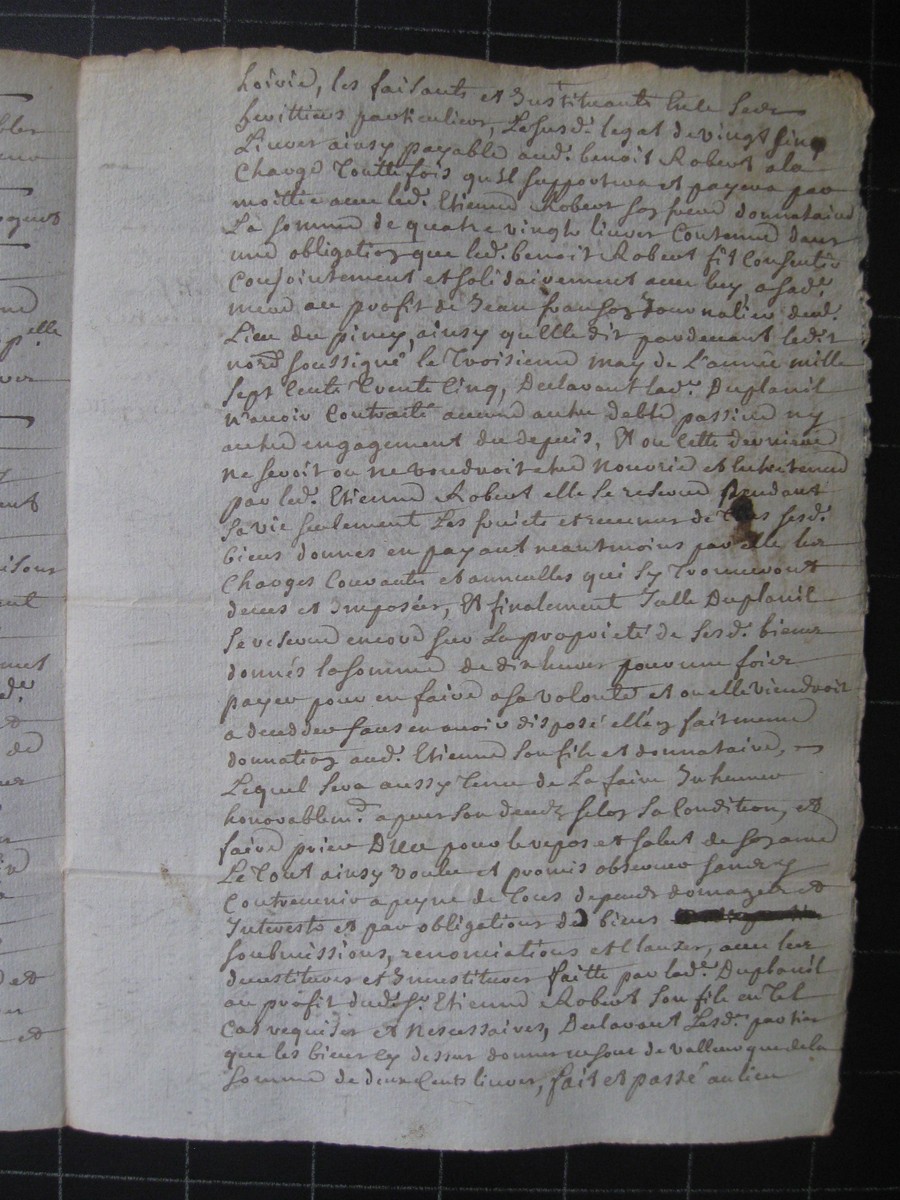 hoirie, les faisants et Instituants
herittiers particuliers, Le susd. legat de vingt cinq
Livres ainsy payable aud. benoit Robert a la
Charge Touttefois qu'Il supportera et payera par
moittie avec led. Etienne Robert son frere donnataire
La somme de quatre vingts livres Contenue dans
une obligation que led. benoit Robert fit Consentir
Conjointement et solidairement avec luy a sad.e
mere au profit de Jean françon Journalier dud.
Lieu du piney, ainsy qu'Elle dit pardevant ledit
nore. soussigné le Troisieme may de L'année mille
sept Cents Trente Cinq, Declarant lad.e Duplanil
n'avoir Contracté aucune autre debte passive ny
autre engagement du depuis, Et ou Cette derniere
ne seroit ou ne voudroit etre nourrie et Entretenue
par led. Etienne Robert elle se reserve pendant
sa vie seulement Les fruicts et revenus de Tous sesd.
biens donnés en payant neantmoins par elle les
Charges Courantes et annuelles qui sy Trouveront
deues et Imposées, Et finalement Icelle Duplanil
se reserve encore sur La proprieté de sesd. biens
donnés la somme de dix livres pour une fois
payer pour en faire a sa volonté et ou elle viendroit
a decedder sans en avoir disposé elle en fait meme
donnation aud. Etienne son fils et donnataire,
Lequel sera aussy Tenu de La faire Inhumer
honorablemt. apres son deceds selon sa Condition, et
faire prier Dieu pour le repos et salut de son ame
Le Tout ainsy voulu et promis observer sans y
Contrevenir a peyne de Tous depends domages et
Interests et par obligations de biens
soubmissions, renonciations et Clauses, avec les
devestitures et Investitures faitte par lad.e Duplanil
au profit dud. Sr. Etienne Robert son fils en Tel
Cas requises et Nescessaires, Declarant Lesd. parties
que les biens cy dessus donnés ne sont de valleur que de la
somme de deux Cents livres, fait et passé au lieu